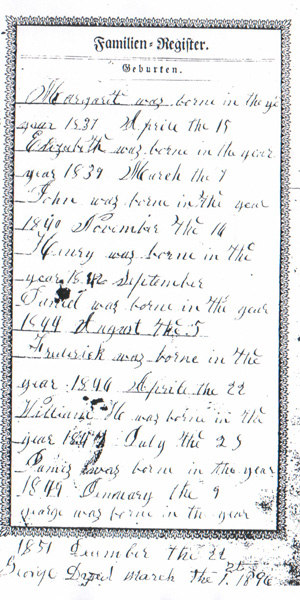 Familien-Register.
Geburten.
Margaret was borne in the ye
year 1837 Aprile the 15
Elizabeth was borne in the year
year 1839 March the 7
John was borne in the year
1840 November the 16
Henry was borne in the
year 1842 September
Daniel was borne in the year
1844 August the 5
Frederick was borne in the
year 1846 Aprile the 22
William H was borne in the
year July the 25
was borne in the year
1849 the 9
George was borne in the year
1851 the 22
George March the 1. 1896